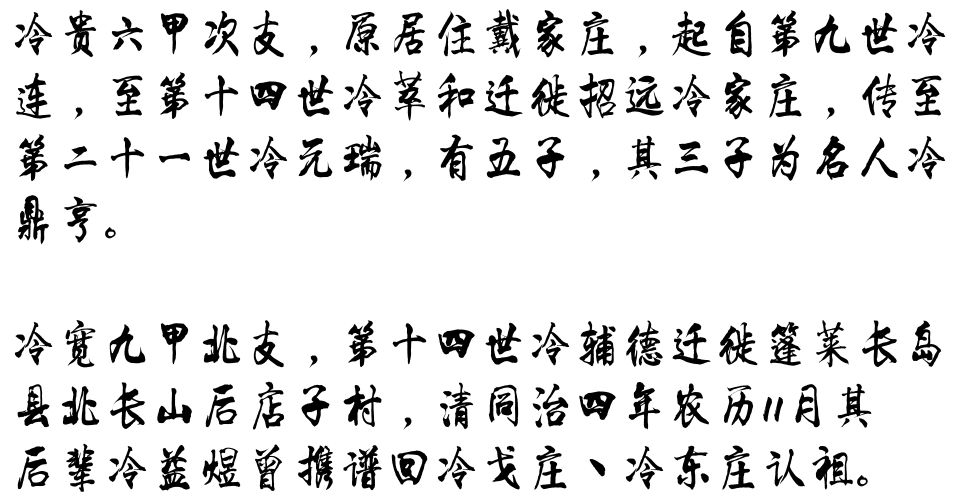 冷贵六甲次支，原居住戴家庄，起自第九世冷
连，至第十四世冷萃和迁徙招远冷家庄，传至
第二十一世冷元瑞，有五子，其三子为名人冷
鼎亨。
冷宽九甲北支，第十四世冷辅德迁徙篷莱长岛
县北长山后店子村，清同治四年农历11月其
后辈冷益煜曾携谱回冷戈庄、冷东庄认祖。